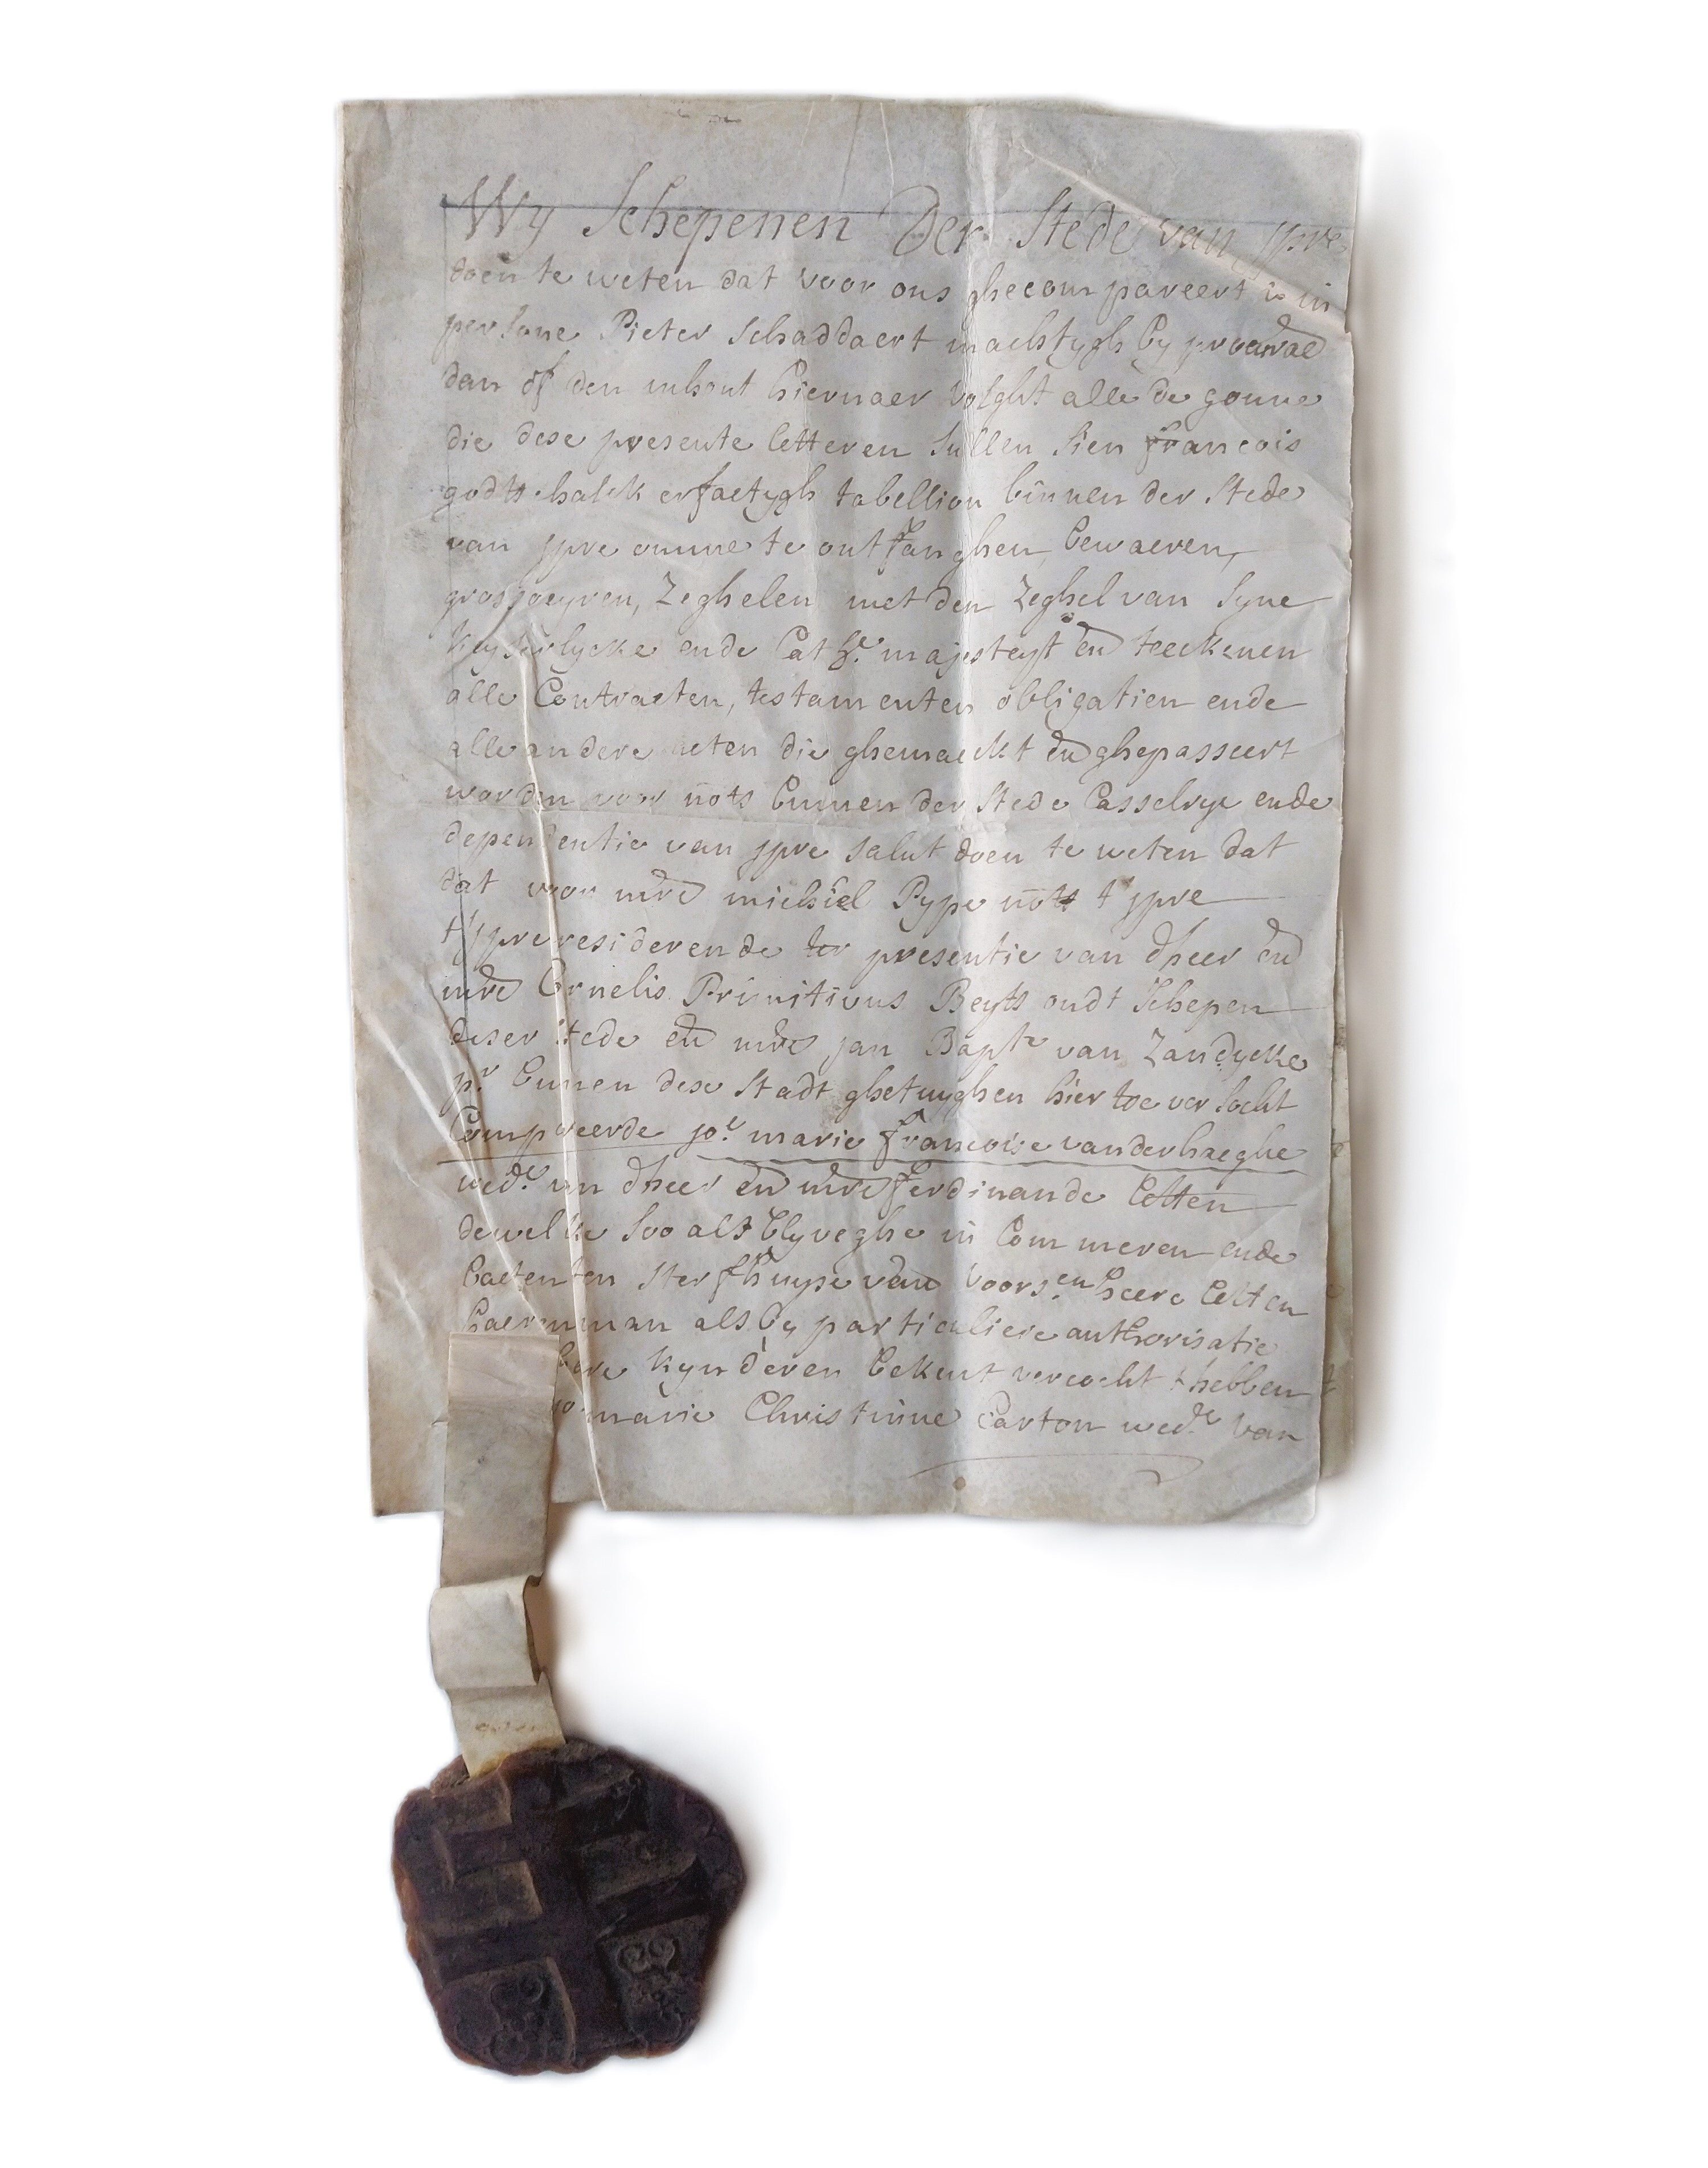 Wy Schepenen Der Stede van ypre
doen te weten dat voor ons ghecompareert is in
persone Pieter Schaddaert machtygh by
dan of den inhout hiernaer volght alle de gonne
die dese presente letteren sullen sien francois
godtschalck erfactygh tabellion binnen der stede
van ypre omme te ontfanghen, bewaeren,
grosseyren, Zeghelen met den Zeghel van syne
keyserlycke ende Cathe. majesteyt en̄ teeckenen
alle Contracten, testamenten obligatien ende
alle andere acten die ghemaeckt en̄ ghepasseert
worden voor nots binnen der stede Casselrye ende
dependentie van ypre salut doen te weten dat
dat voor mre michiel Pype nots t'ypre
t'ypre residerende ter presentie van dheer en̄
mre Cornelis Primitivus Beyts oudt schepen
deser stede en̄ mre jan Bapte van Zandycke
pr. binnen dese stadt ghetuyghen hier toe versocht
Compareerde jor. marie francoise vanderhaeghe
wede. van dheer en̄ mre ferdinande Cetten
dewelke soo als blyveghe in Commeren ende
baeten ten sterfhuyse van voors.en heere Cetten
haeren man als by particuliere authorisatie
kynderen bekent vercocht t'hebben
marie Christinne Carton wede. van